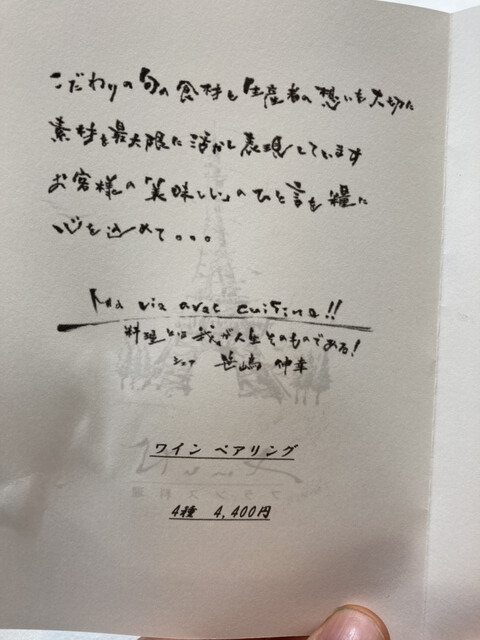 こだわりの旬の食材と生産者の想いを大切に
素材を最大限に活かし表現しています
お客様の「美味しい」のひと言を糧に
心を込めて。。。
Ma vie avec cuisine!!
料理とは我が人生そのものである!
シェフ 笹嶋 伸幸
ワイン ペアリング
フランス料理
4種 4,400円